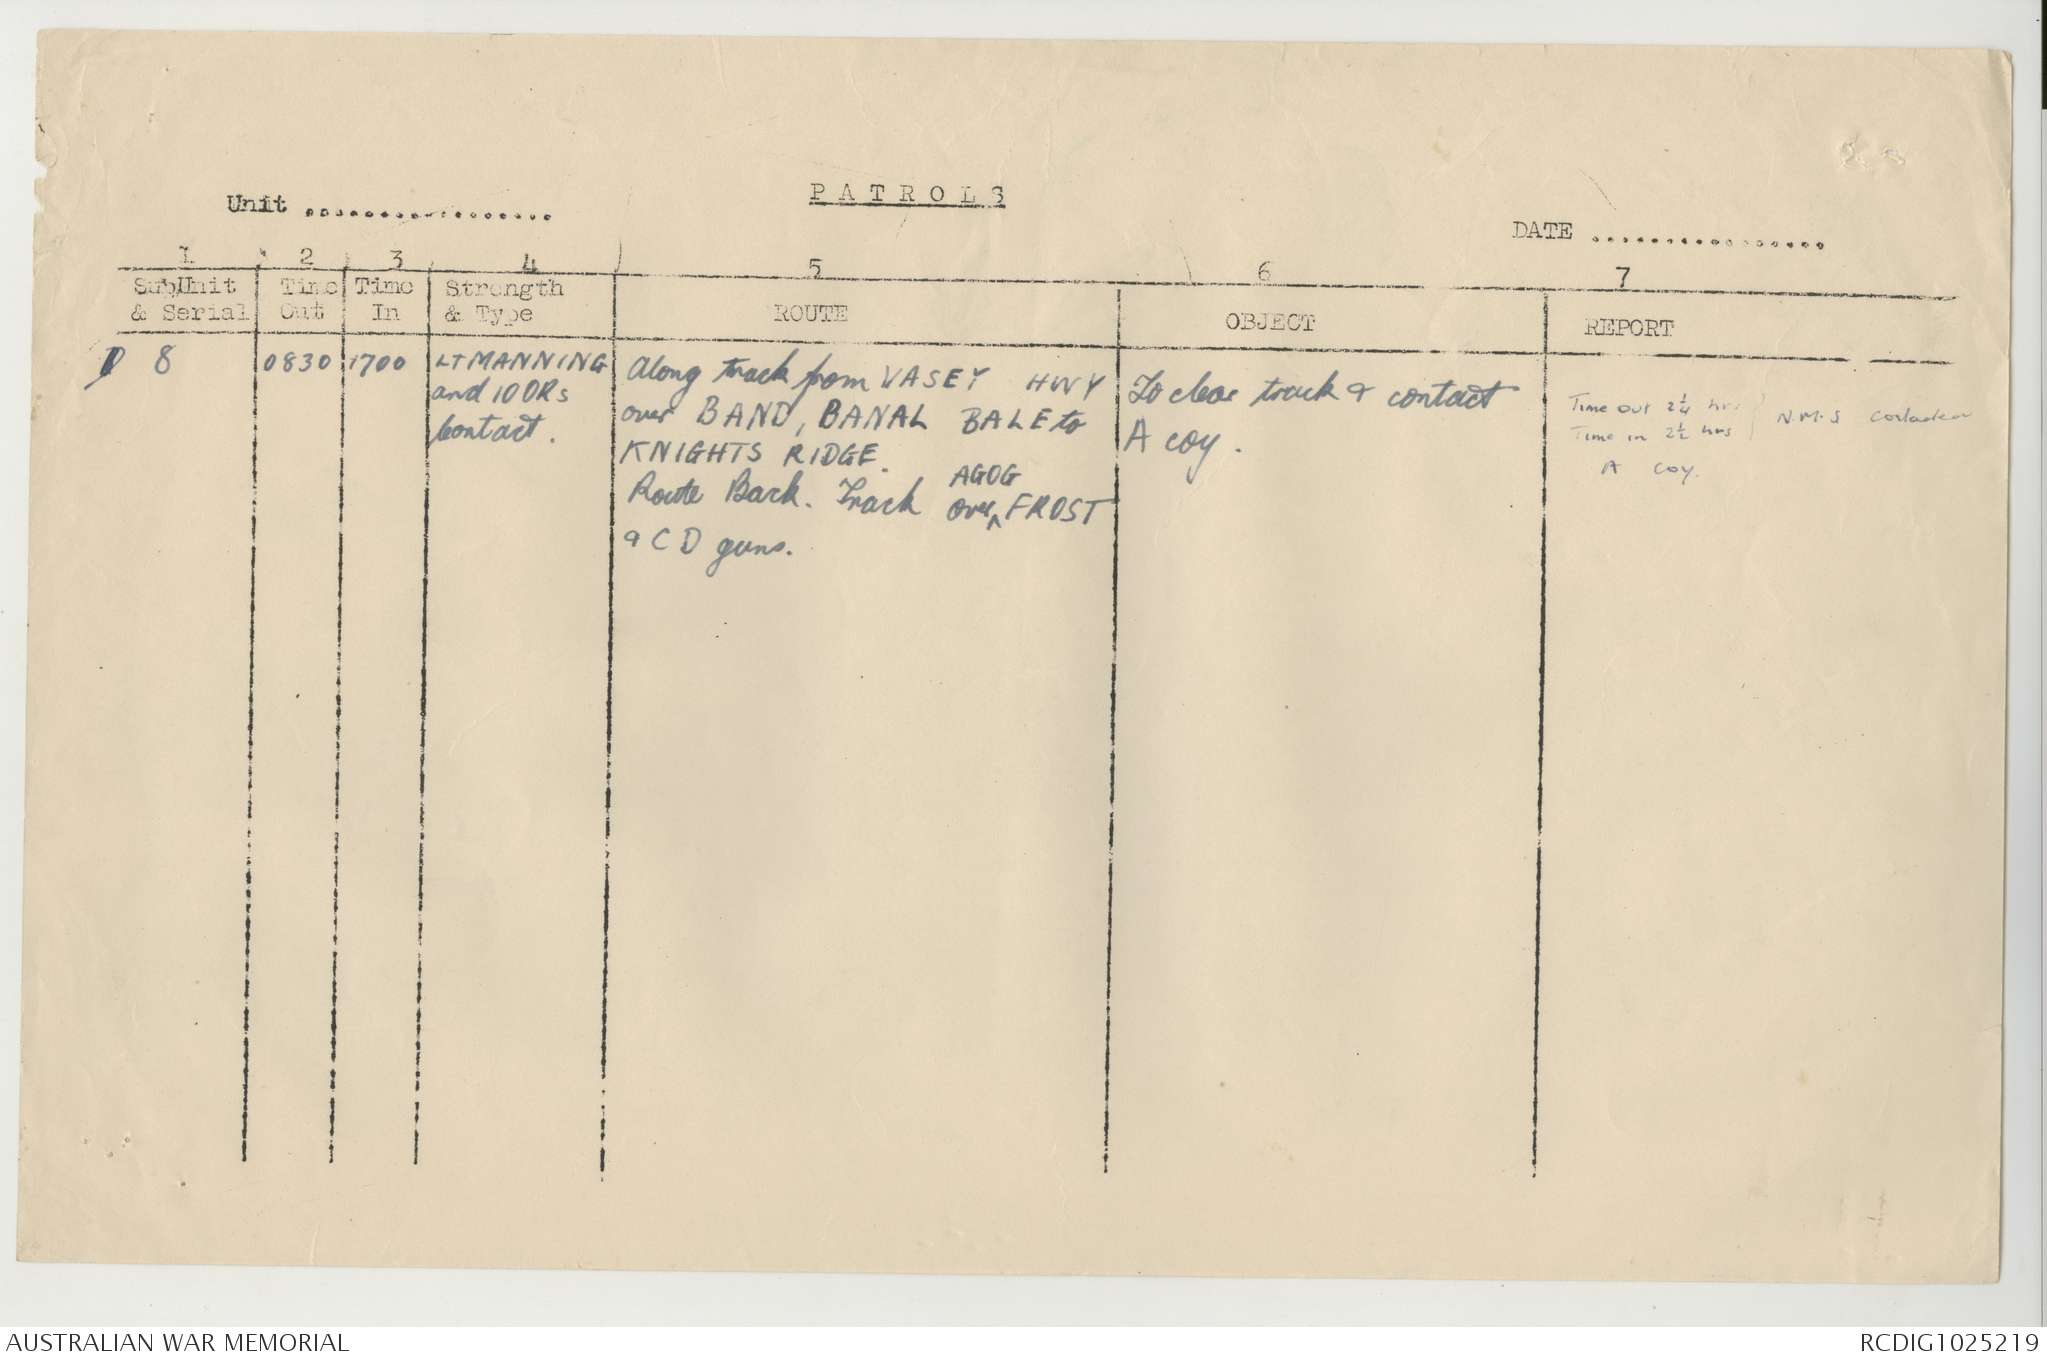 PATROLS
Unit .................
DATE ................
1 2 3 4 5 6 7
SubUnit & Serial
Time Out
Time In
Strength & Type
ROUTE
OBJECT
REPORT
D 8
0830
1700
LT MANNING
and 10 ORs
Contact.
Along track from VASEY HWY
over BAND, BANAL BALE to
KNIGHTS RIDGE.
Route Back. Track over AGOG FROST
& C D guns.
To clear track & contact
A coy.
Time out 2¼ hrs
Time in 2½ hrs
N.M.S
A coy.
AUSTRALIAN WAR MEMORIAL
RCDIG1025219